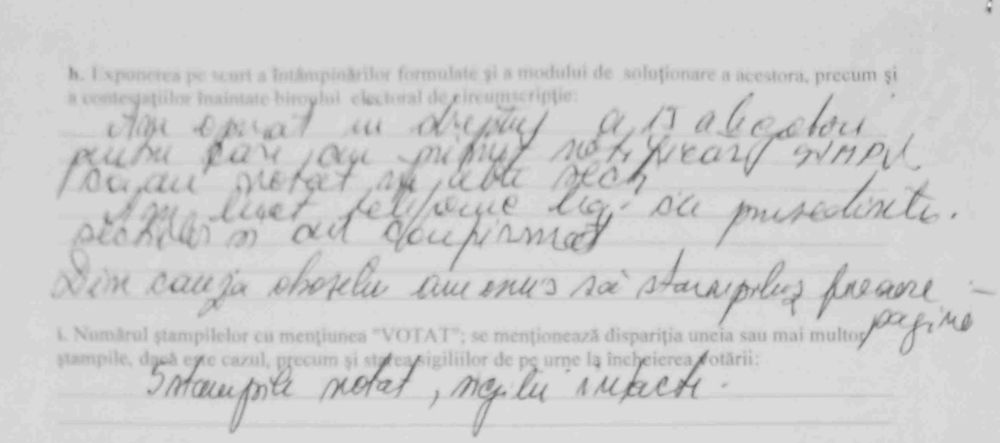 h. Exponerea pe scurt a întâmpinărilor formulate şi a modului de soluţionare a acestora, precum şi
a contestaţiilor înaintate biroului electoral de circumscripţie:
Am operat in dreptul a 13 alegatori
pentru care am primit notificari SIMPV
ca au votat in alte sectii
Am luat telefonic leg. cu presedintii
sectiilor si au confirmat
Din cauza oboselii am omis să stampiluz fiecare
pagina
i. Numărul ştampilelor cu menţiunea "VOTAT"; se menţionează dispariţia uneia sau mai multor
ştampile, dacă este cazul, precum şi starea sigiliilor de pe urne la încheierea votării:
5 stampile votat, sigilii intacte.